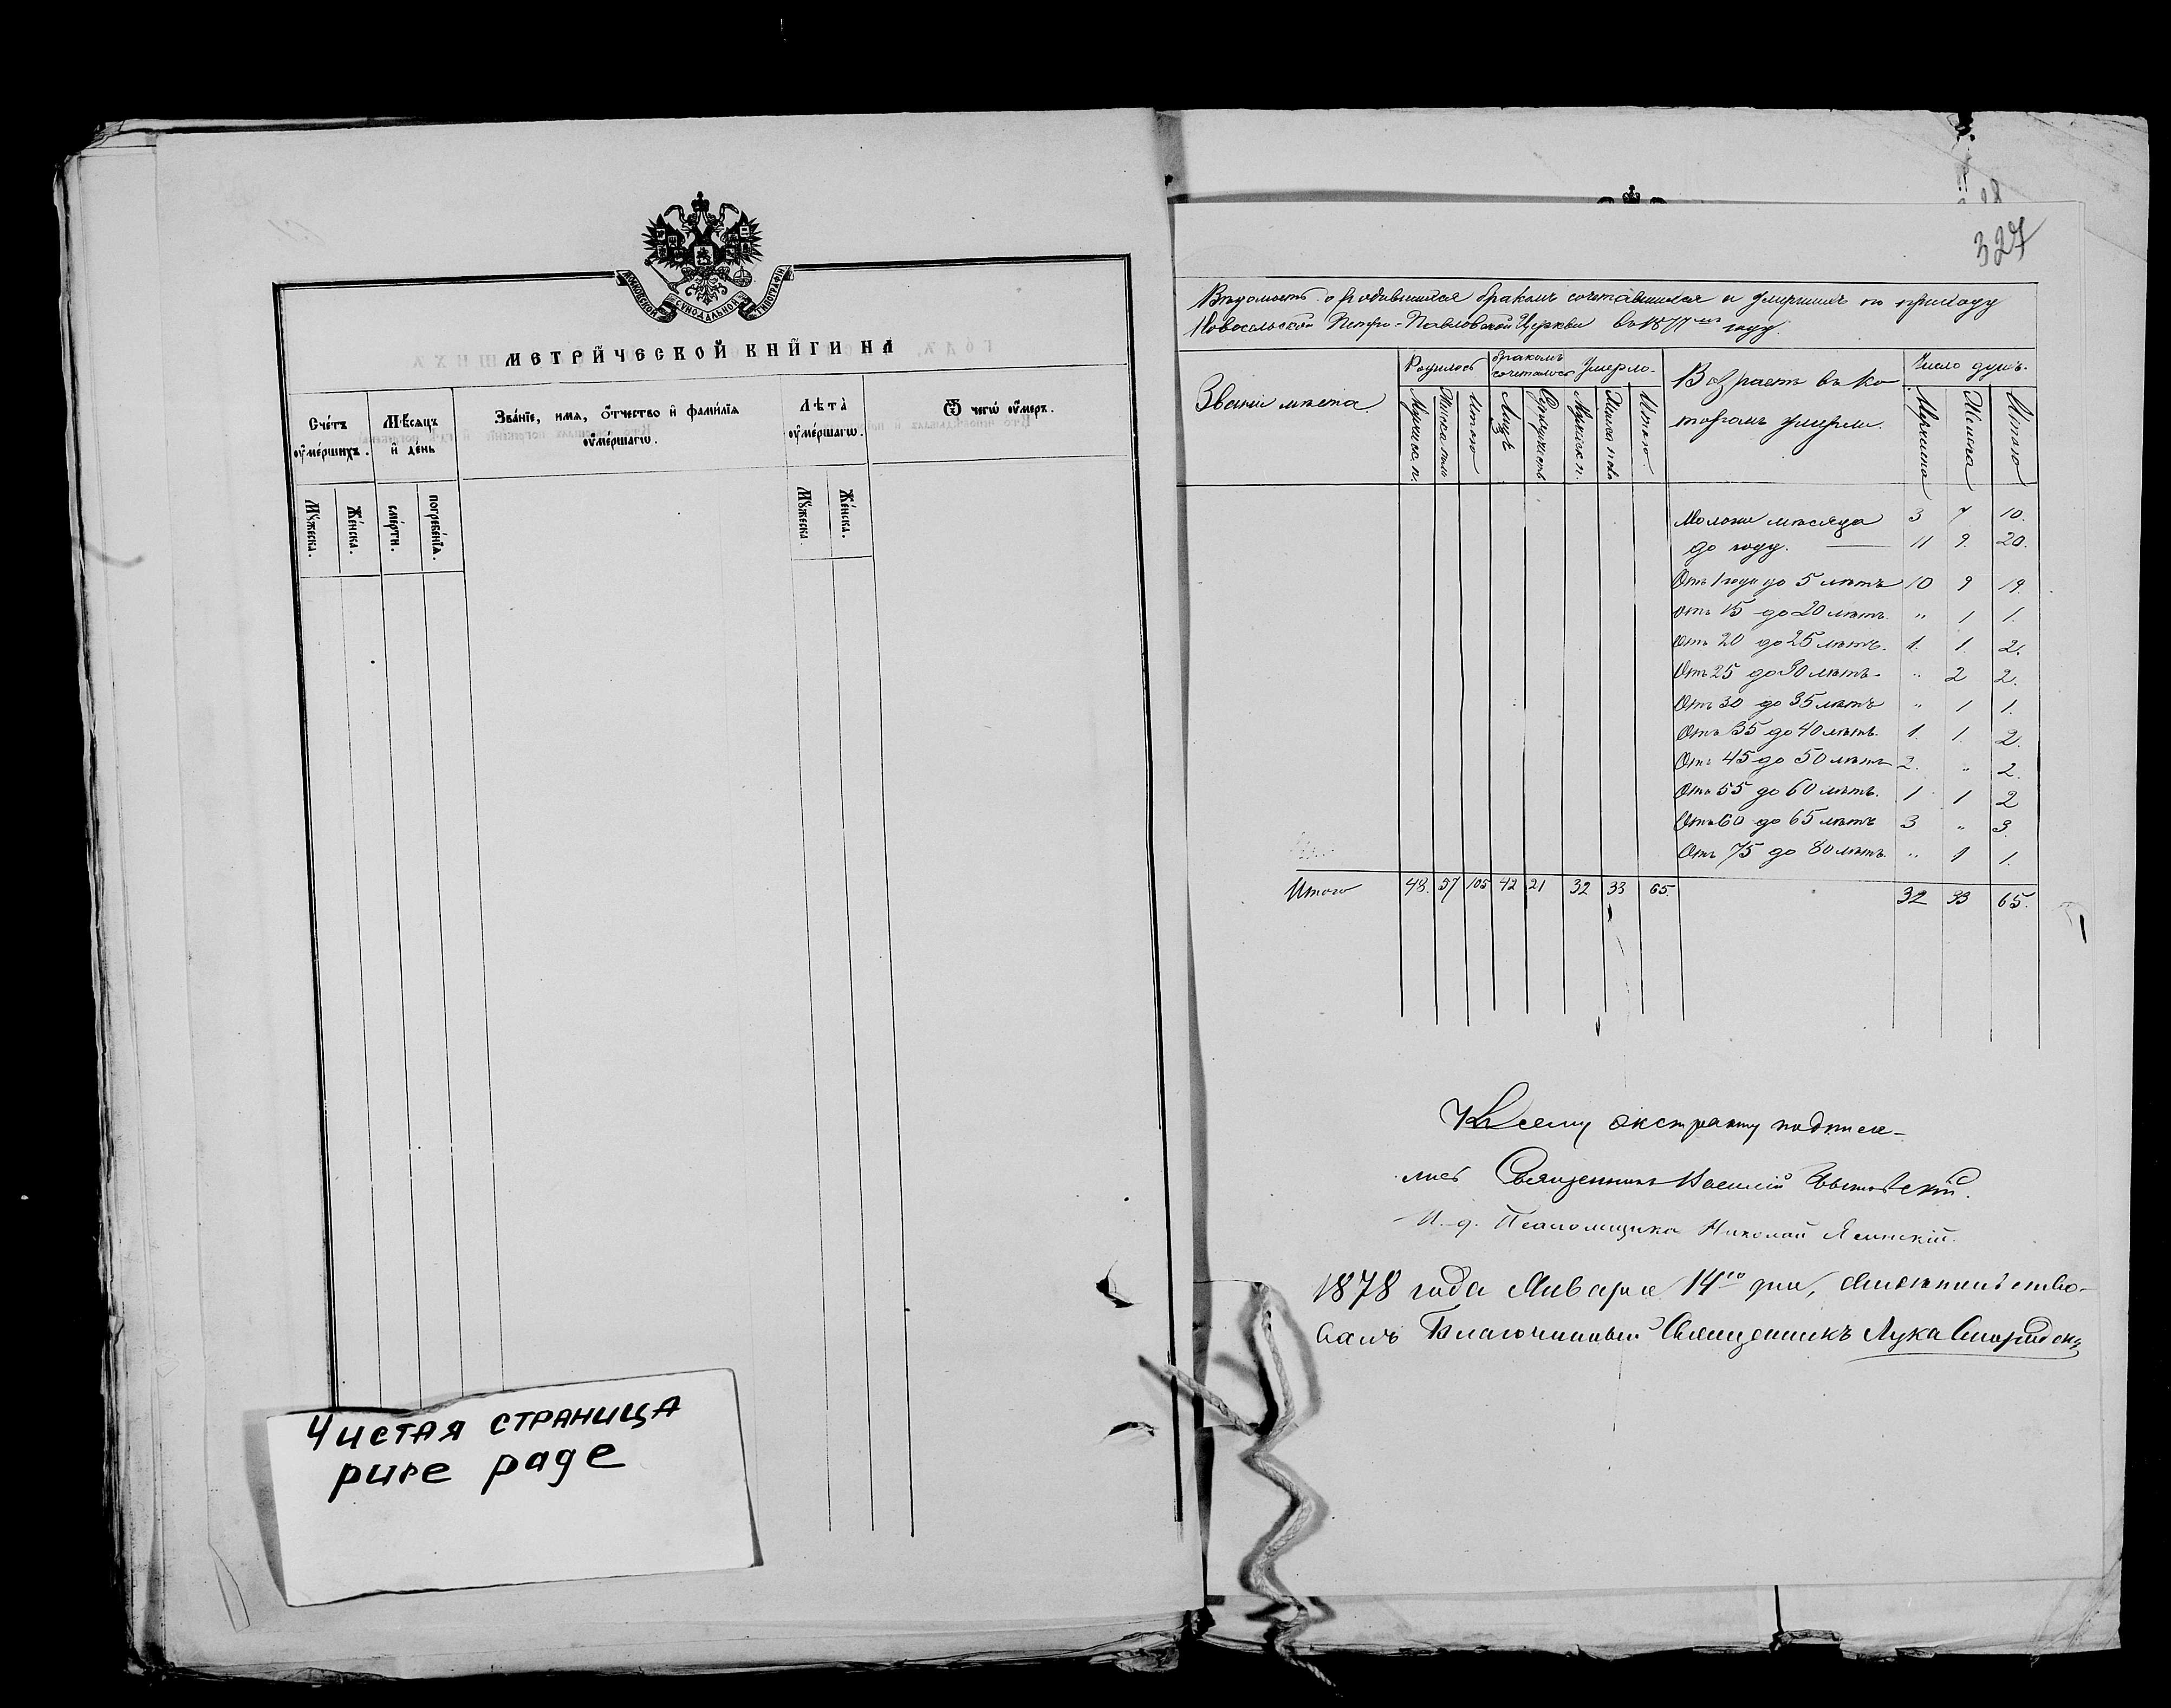 МОСКОВСКОЙ СѴНОДАЛЬНОЙ ТИПОГРАФІИ
МЕТРИ́ЧЕСКОЙ КНИ́ГИ НА
Сче́тъ ᲂу҆ме́ршихъ.
Мѣ́сяцъ и҆ де́нь
Зва́нїе, имѧ, ѻ҆́тчество и҆ фами́лїѧ ᲂу҆ме́ршагѡ.
Лѣта̀ ᲂу҆ме́ршагѡ.
Ѿ чегѡ̀ ᲂу҆́меръ.
Мꙋ́жеска.
Же́нска.
сме́рти.
погребе́нїѧ.
Мꙋ́жеска.
Же́нска.
Чистая страница
pure page
327
Вѣдомость о родившихся бракомъ сочетавшихся и умершихъ по приходу
Новосельской Петро-Павловской Церкви въ 1877мъ году.
Званіе мѣста
Родилось
бракомъ сочеталось
Умерло.
Возрастъ въ ко
торомъ умерли.
Число душъ.
Мужеск. п.
Женска пола
Итого
Лицъ
Супружествъ
Мужеск п.
Женска пола
Итого.
Мужеска
Женска
Итого
Моложе мѣсяца 3 7 10.
до году. 11 9. 20.
Отъ 1 года до 5 лѣтъ 10 9 19.
отъ 15 до 20 лѣтъ. " 1 1.
Отъ 20 до 25 лѣтъ. 1. 1. 2.
Отъ 25 до 30 лѣтъ- " 2 2.
Отъ 30 до 35 лѣтъ " 1 1.
Отъ 35 до 40 лѣтъ. 1. 1. 2.
Отъ 45 до 50 лѣтъ 2. " 2.
Отъ 55 до 60 лѣтъ. 1 1 2
Отъ 60 до 65 лѣтъ 3 " 3.
Отъ 75 до 80 лѣтъ. " 1 1.
Итого 48. 57 105 42 21 32 33 65. 32 33 65.
К Сему экстракту подписа-
лись Священникъ Василій
И. д. Псаломщика Николай Ясинскій.
1878 года Января 14го дня, свидѣтельство-
валъ Благочинный Священникъ Лука